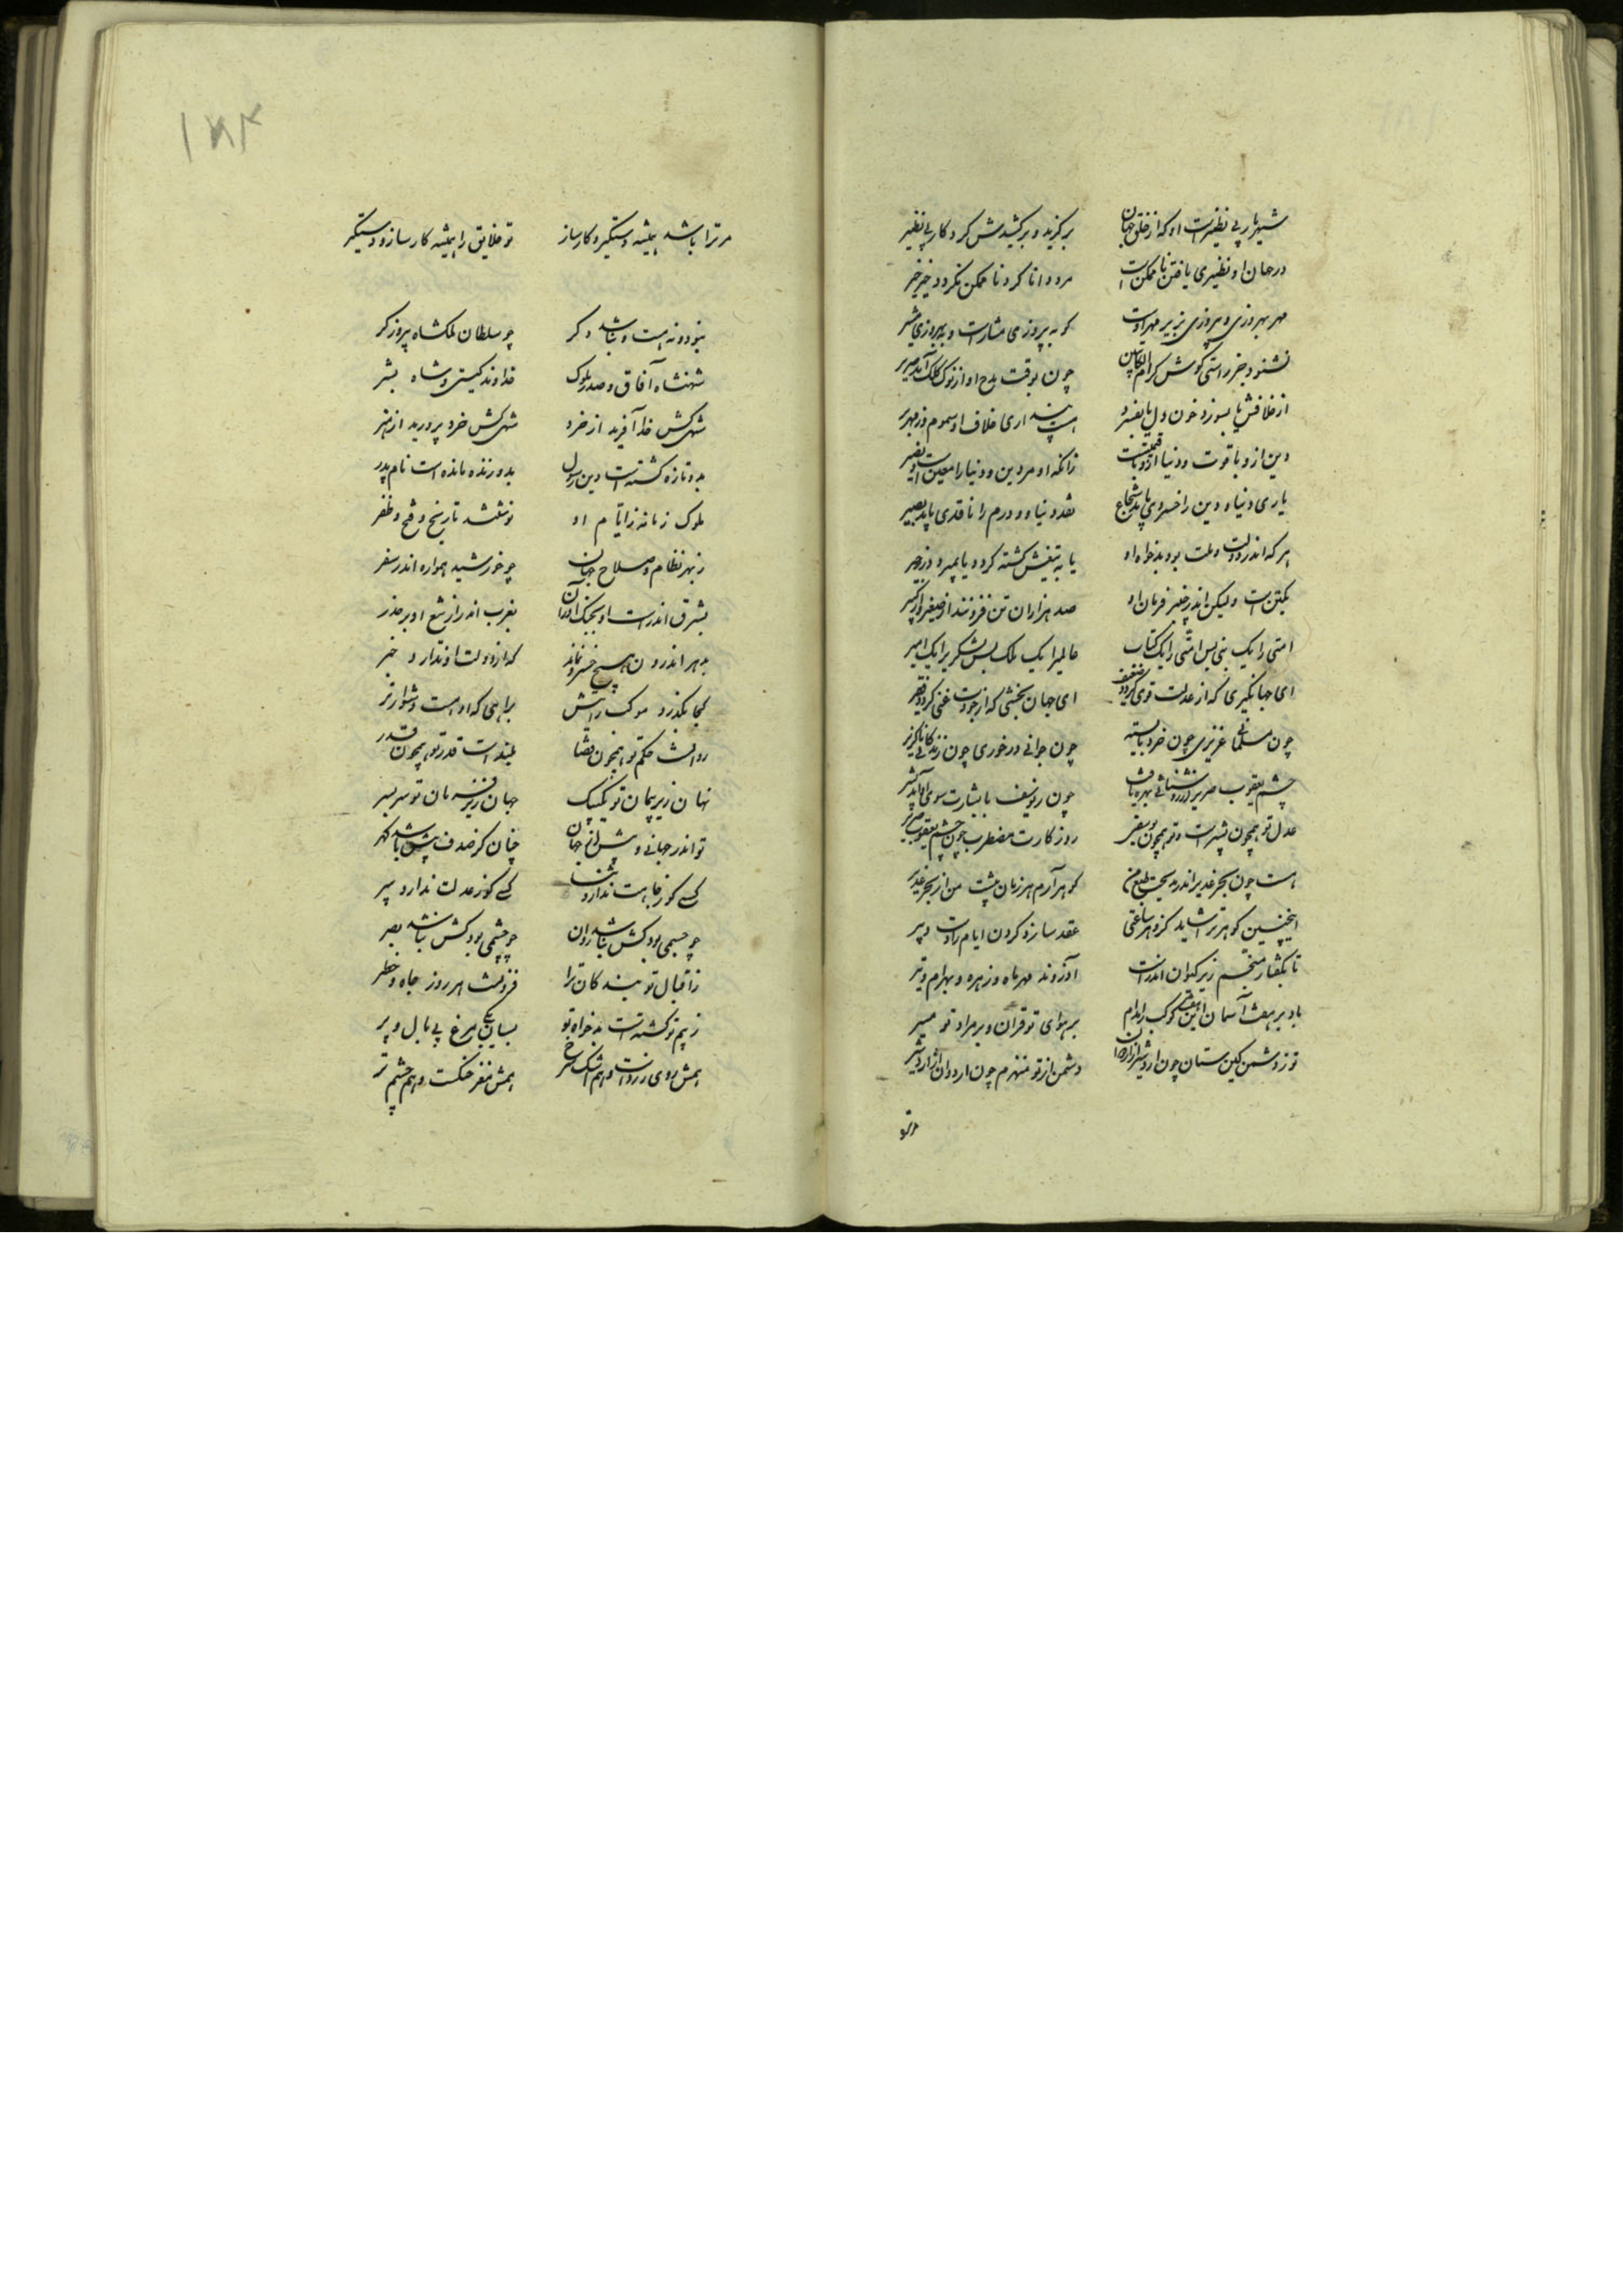 شهریار بی نظیرست او که از خلق جهان برگزید و برکشیدش کردکار بی نظیر
در جهان او نظیری یافتن ناممکن است مرد دانا کرد ناممکن نکردد خیر خیر
مهر بهروزی و پیروزی بزیر مهر اوست کو به پیروزی مشارست و به بهروزی مشیر
نشنود جز راستی کوش کرام الکاتبین چون بوقت مدح او از نوک کلک آید صریر
از خلافش یا بسوزد خون دل یا بفسرد هست پنداری خلاف او سموم و زمهریر
دین ازو با قوت و دنیا ازو با قیمتست زانکه او مر دین و دنیا را معین است و نصیر
یاری دنیا و دین را خسروی باید شجاع نقد دنیا و درم را ناقدی باید بصیر
هر که اندر دولت و ملت بود بدخواه او یا به تیغش کشته کردد یا بمیرد در زحیر
یکتن است ولیکن اندر چنبر فرمان او صد هزاران تن فزونند از صغیر و از کبیر
امتی را یک نبی بس امتی را یک کتاب عالمی را یک ملک بس لشکری را یک امیر
ای جهانگیری که از عدلت قوی کردد ضعیف ای جهان بخشی که از جودت غنی کردد فقیر
چون مسلمانی عزیزی چون خرد بایسته چون جوانی درخوری چون زندکانی ناکزیر
چشم یعقوب ضریر از روشنائی بهره یافت چون ز یوسف با بشارت سوی او آمد بشیر
عدل تو همچون بشیرست و تو همچون یوسفی روزکارت مضطرب چون چشم یعقوب ضریر
هست چون بحر غدیر اندر مدیحت طبع من کوهر آرم هر زمان پیشت من از بحر غدیر
اینچنین کوهر ترا شاید کزو هر ساعتی عقد سازد کردن ایام را دست دبیر
تا بکفتار منجم زیر کیوان اندرست اورزوند مهر و ماه و زهره و بهرام و تیر
باد بر هفت آسمان این هفت کوکب را مدام بر هوای تو قران و بر مراد تو مسیر
تو ز دشمن کین ستان چون اردشیر از اردوان دشمن از تو منهزم چون اردوان از اردشیر
مرترا
مر ترا باشد همیشه دستکیر و کارساز تو خلایق را همیشه کارساز و دستکیر
نبود و نه هست و نباشد دکر چو سلطان ملکشاه پیروزکر
شهنشاه آفاق و صدر ملوک خداوند کیتی و شاه بشر
شهی کش خدا آفرید از خرد شهی کش خرد پرورید از هنر
بدو تازه کشته است دین رسول بدو زنده مانده است نام پدر
ملوک زمانه ز ایام او نوشتند تاریخ و فتح و ظفر
ز بهر نظام و صلاح جهان چو خورشید همواره اندر سفر
بشرق اندرست او بجنک اندران بغرب اندر از تیغ او بر حذر
بدهر اندرون هیچ خسرو نماند که از دولت او ندارد خبر
کجا بگذرد موکب رایتش براهی که او هست دشوارتر
روانست حکم تو همچون قضا بلندست قدر تو همچون قدر
نهان زیر پیمان تو یک بیک جهان زیر فرمان تو سربسر
تو اندر جهانی و بیش از جهان چنان کز صدف بیش باشد کهر
کسی کو ز جاهت ندارد پناه کسی کو ز عدلت ندارد سپر
چو جسمی بود کش نباشد روان چو چشمی بود کش نباشد بصر
ز اقبال تو بندکان ترا فزونست هر روز جاه و خطر
ز بیم تو کشتست بدخواه تو بسان یکی مرغ بی بال و پر
همش روی زردست و هم اشک سرخ همش مغز خشکست و هم چشم تر